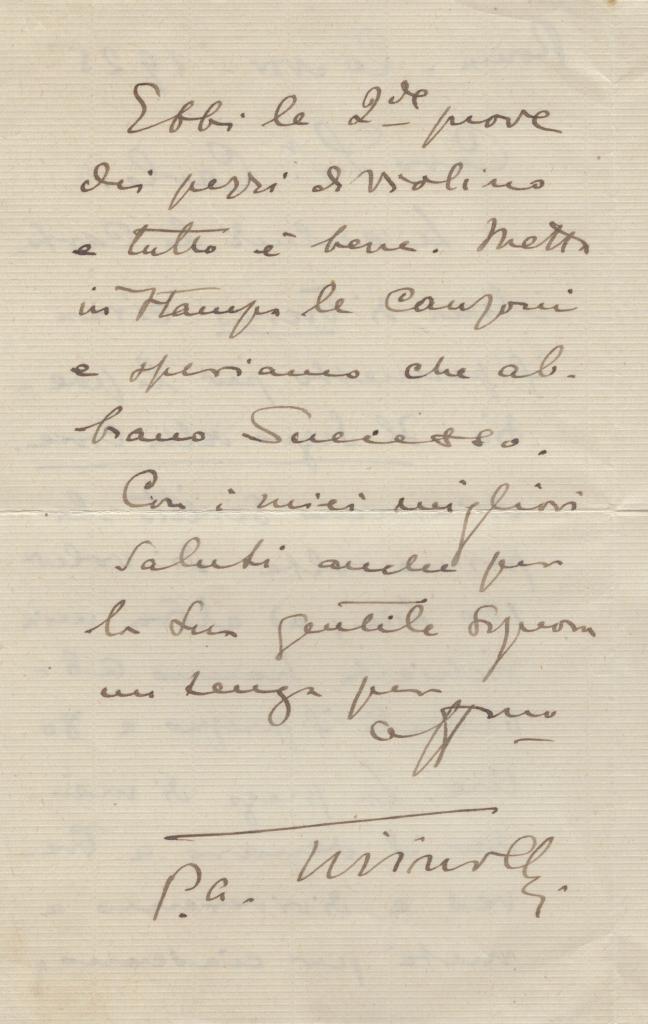 Ebbi le 2de prove
dei pezzi di violino
e tutto è bene. Metta
in stampa le canzoni
e speriamo che ab-
biano Successo.
Con i miei migliori
saluti anche per
la Sua gentile Signora
mi tenga per
affmo
P. A. Tirindelli